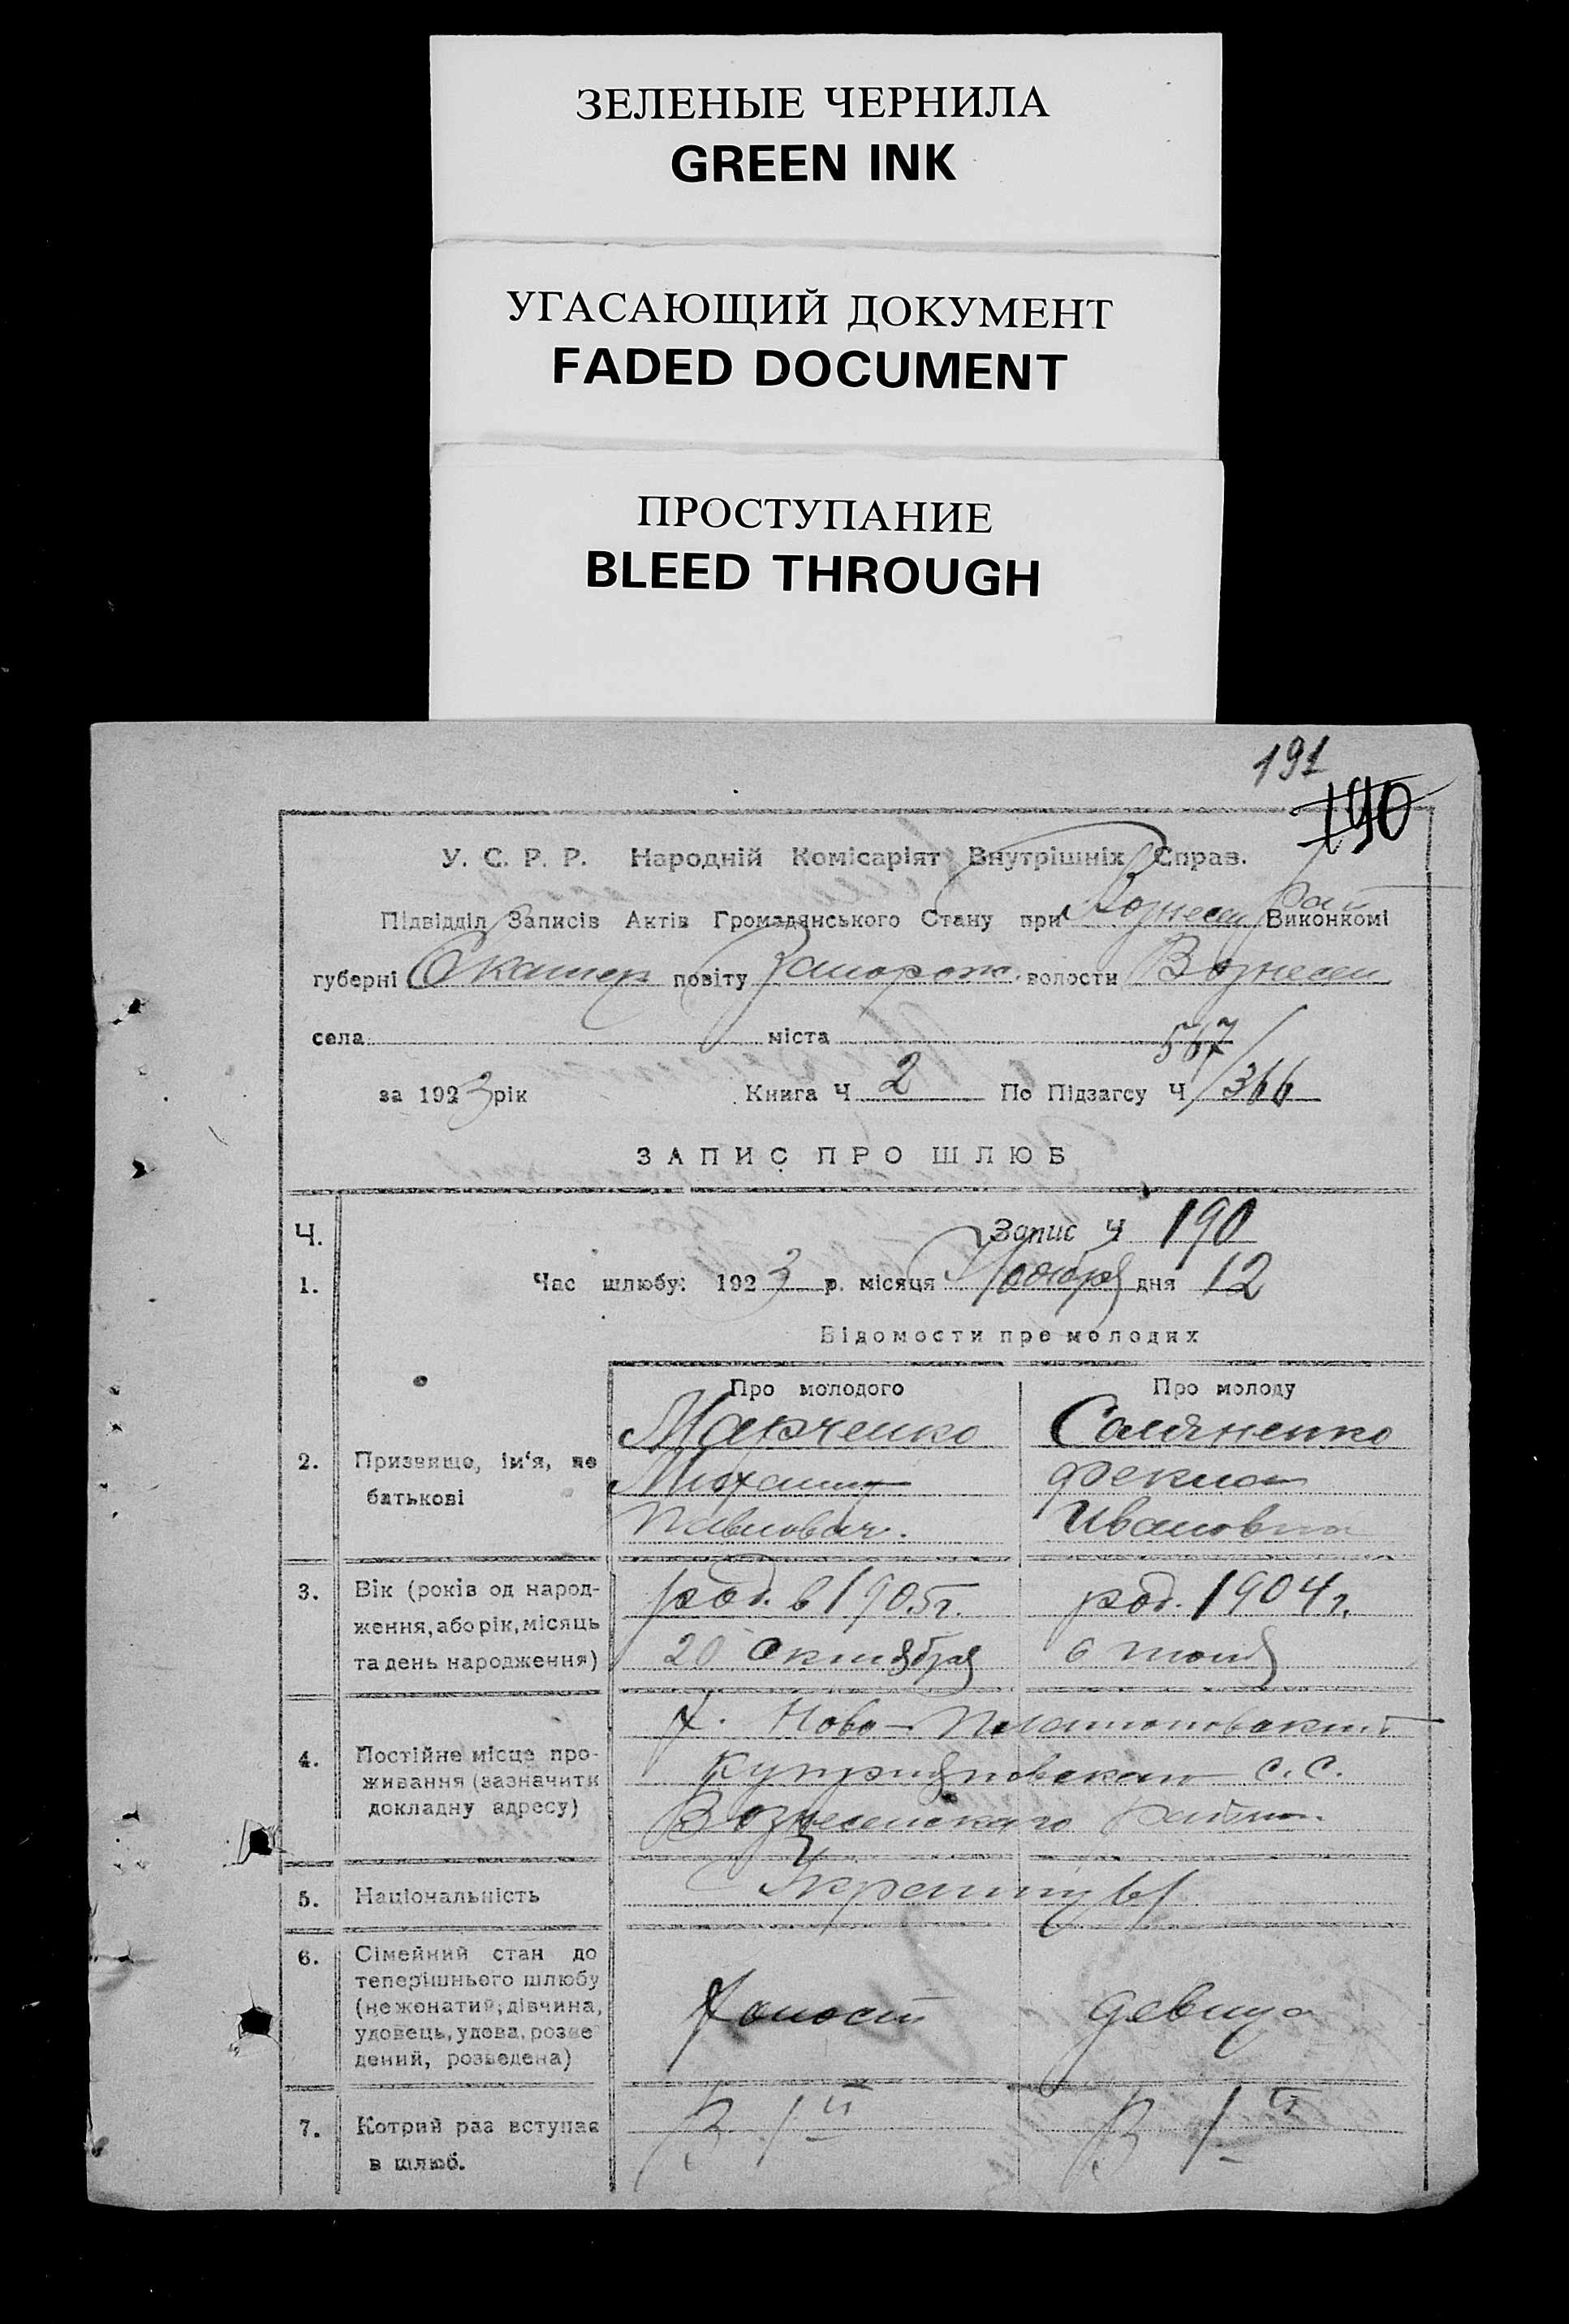 ЗЕЛЕНЫЕ ЧЕРНИЛА
GREEN INK
УГАСАЮЩИЙ ДОКУМЕНТ
FADED DOCUMENT
ПРОСТУПАНИЕ
BLEED THROUGH
191
190
У. С. Р. Р. Народній Комісаріят Внутрішніх Справ.
Підвідділ Записів Актів Громадянського Стану при Вознесен Рай Виконкомі
губерні Екатер повіту Запорож. волости Вознесен
села міста
567
за 1923 рік Книга Ч 2 По Підзагсу Ч 366
ЗАПИС ПРО ШЛЮБ
Ч. Запис Ч 190
1. Час шлюбу: 1923 р. місяця Ноября дня 12
Відомости про молодих
Про молодого Про молоду
Марченко Соляненко
2. Призвище, ім'я, по батькові
Михаил Фекла
Павлович. Ивановна
3. Вік (років од народ-
ження, або рік, місяць
та день народження)
род. в 1905 г. род. 1904 г.
20 Октября 6
4. Постійне місце про-
живання (зазначити
докладну адресу)
х. Ново-
с. с.
Вознесенского района
5. Національність Украинцы
6. Сімейний стан до
теперішнього шлюбу
(нежонатий, дівчина,
удовець, удова, розве
дений, розведена)
Холост девица
7. Котрий раз вступає
в шлюб.
В 1й В 1й